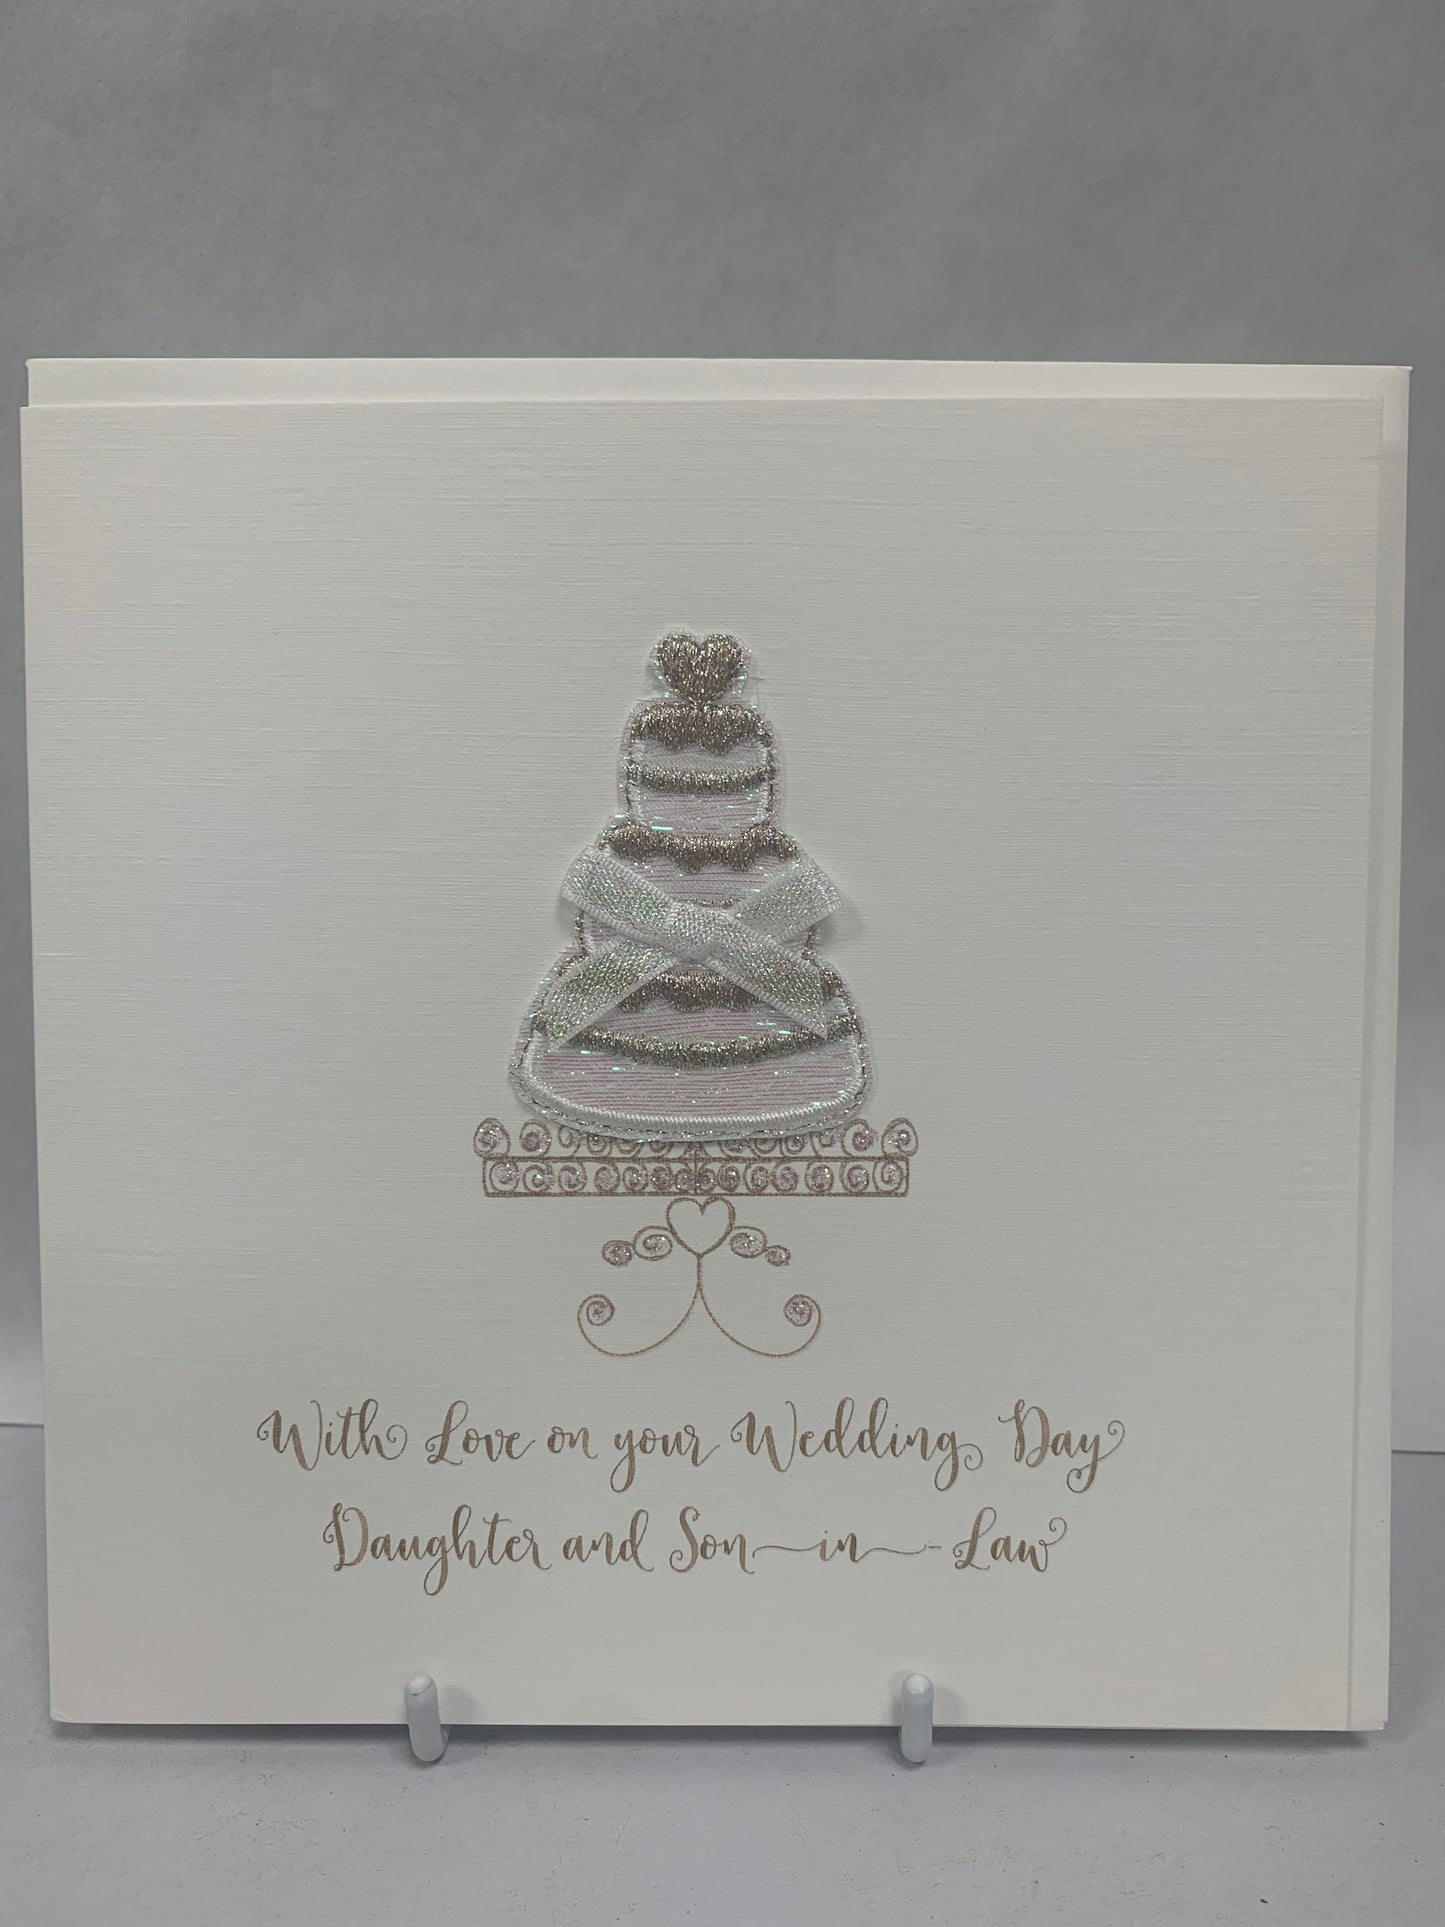 With Love on your Wedding Day
Daughter and Son-in-Law